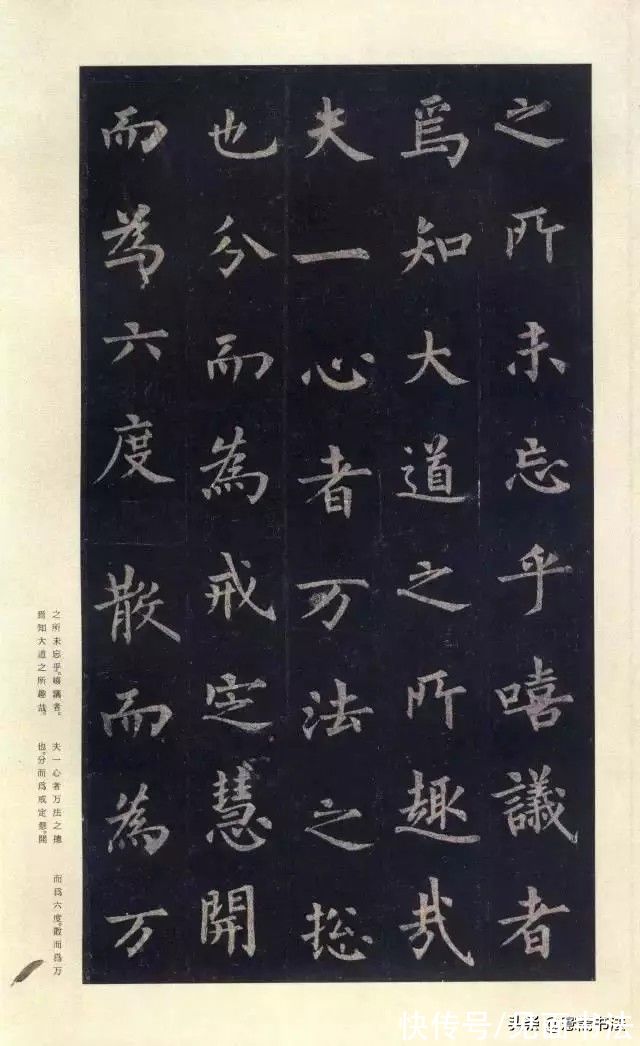 之所未忘乎嘻議者
焉知大道之所趣哉
夫一心者万法之揔
也分而為戒定慧開
而為六度散而為万
之所未忘乎。嘻議者。
焉知大道之所趣哉。
夫一心者万法之揔
也。分而爲戒定慧。開
而爲六度。散而爲万
快传号/ 书法
头条 书法